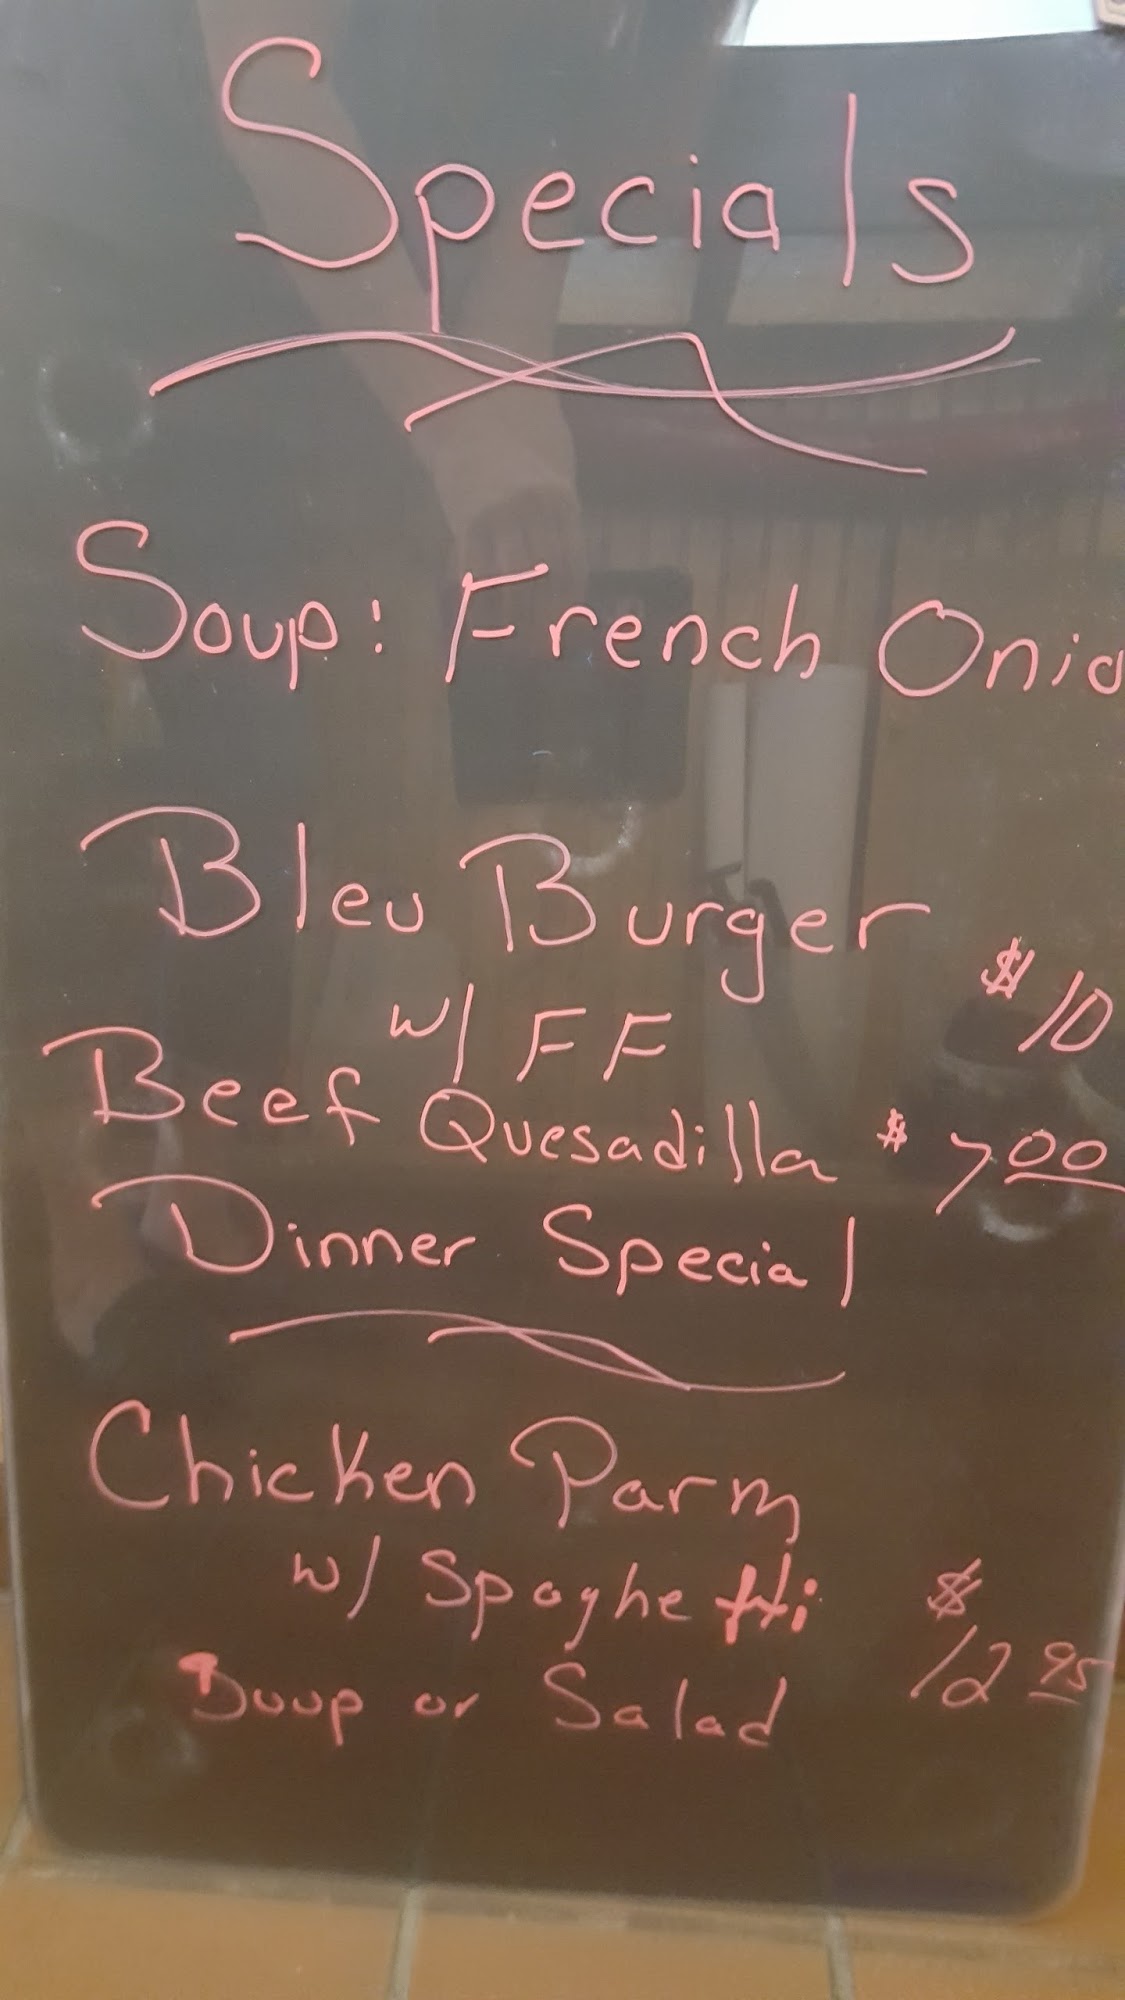 Specials
Soup: French Onio
Bleu Burger
$10
w/ FF
Beef Quesadilla $7.00
Dinner Special
Chicken Parm
w/ Spaghetti $
12 95
Soup or Salad